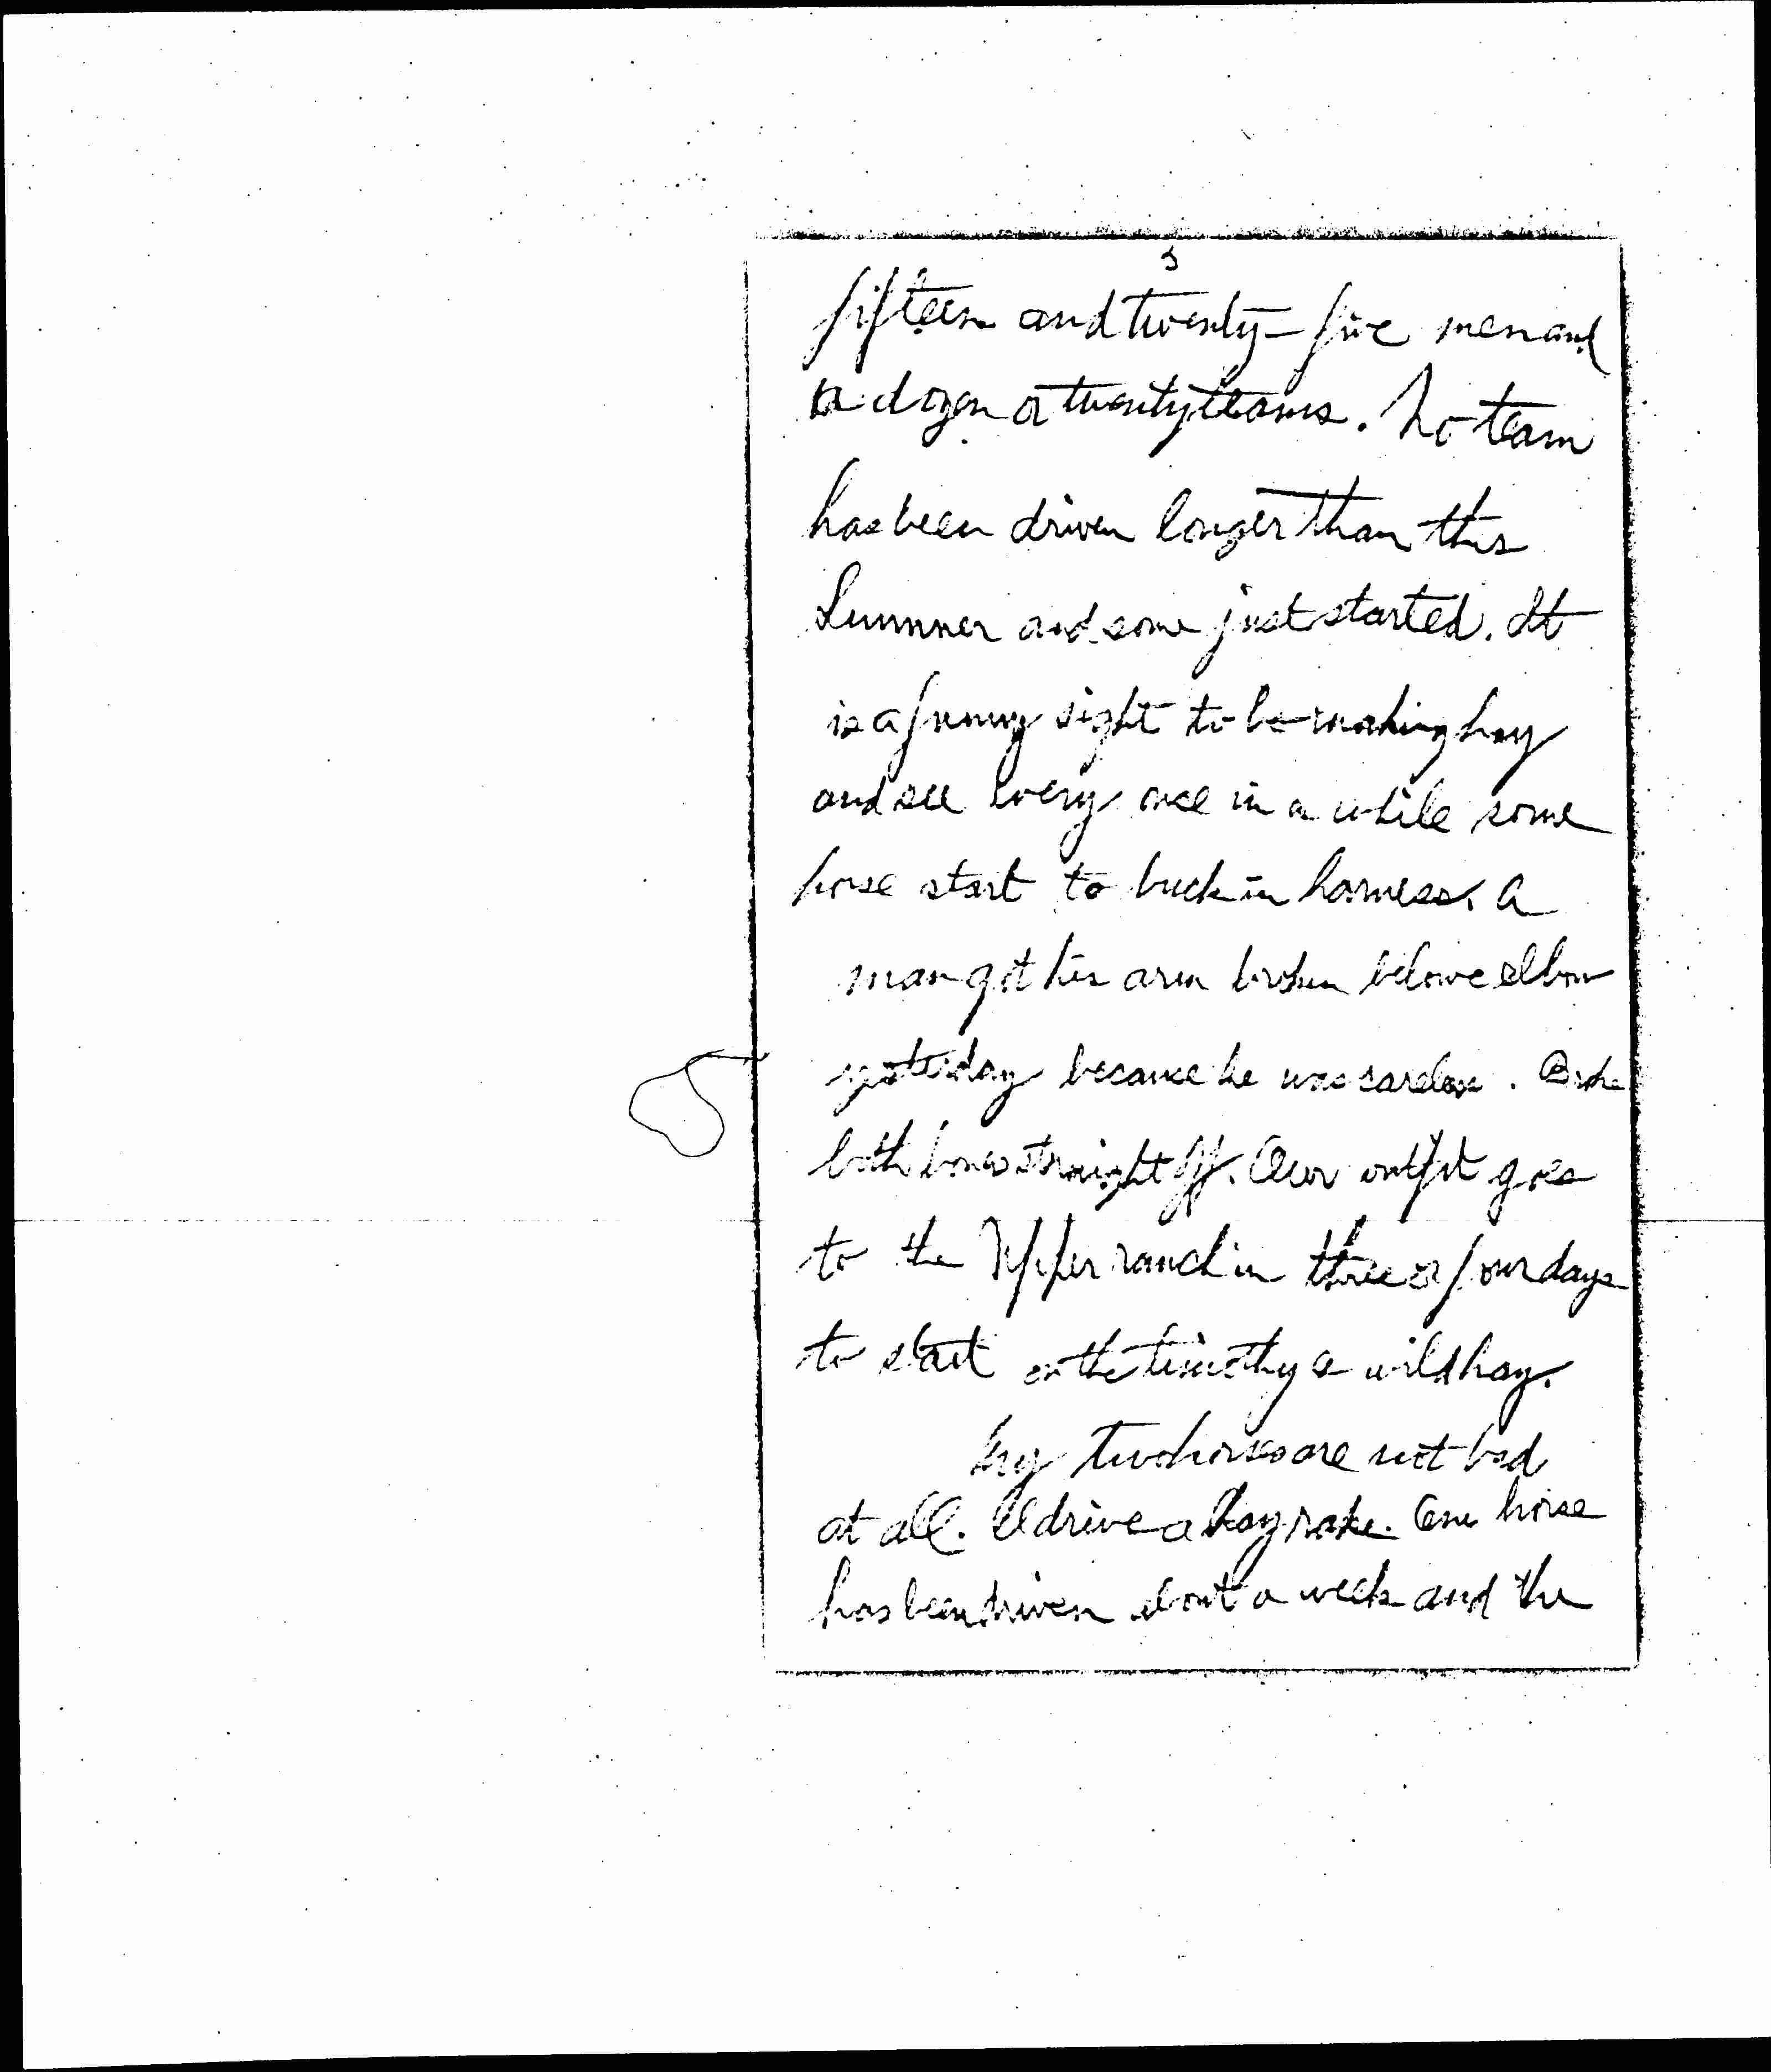 3
fifteen and twenty-five men and
a dozen or twenty teams. No team
has been driven longer than this
Summer and some just started. It
is a funny sight to be making hay
and see every once in a while some
horse start to buck in harness. A
man got his arm broken below elbow
yesterday because he was careless. Broke
both bones straight off. Our outfit goes
to the Upper ranch in three or four days
to start on the timothy & wild hay.
My two horses are not bad
at all. I drive a hay rake. One horse
has been driven about a week and the